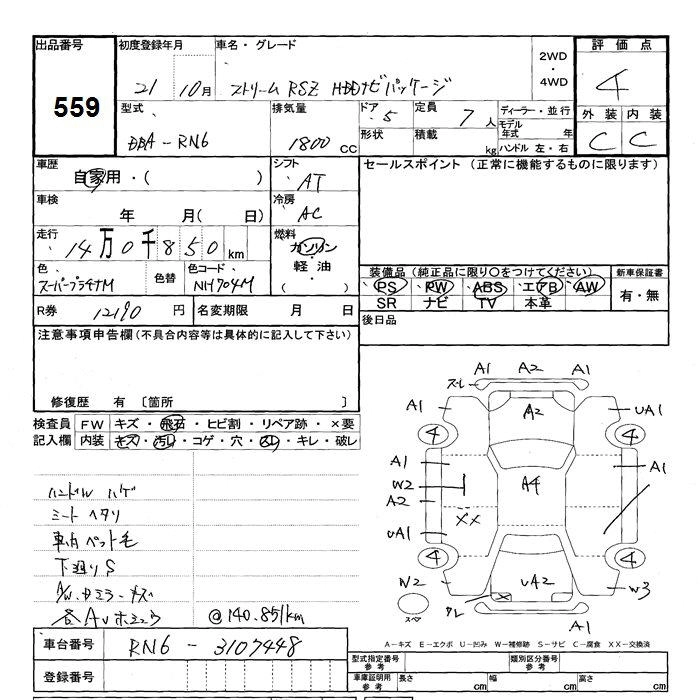 出品番号 初度登録年月 車名・グレード 2WD・4WD 評価点
559 21 10月 ストリーム RSZ HDDナビパッケージ 4
型式 排気量 ドア 5 定員 7人 ディーラー・並行 外装 内装
DBA-RN6 1800 CC 形状 積載 kg モデル年式 年 C C
ハンドル 左・右
車歴 シフト セールスポイント (正常に機能するものに限ります)
自家用・( ) AT
車検 冷房
年 月( 日) AC
走行 燃料
14万0千850km ガソリン・軽油・( )
色 色替 色コード 装備品 (純正品に限り○をつけてください) 新車保証書
スーパープラチナM NH704M PS PW ABS エアB AW 有・無
SR ナビ TV 本革
R券 12190円 名変期限 月 日 後日品
注意事項申告欄(不具合内容等は具体的に記入して下さい)
修復歴 有 〔箇所 〕
検査員 FW キズ・飛石・ヒビ割・リペア跡・×要
記入欄 内装 キズ・汚れ・コゲ・穴・スレ・キレ・破レ
ハンドル ハゲ
シート ヘタリ
車内 ペット毛
下廻りS
A/W.ドミラーキズ
@140.851km
A1 A2 A1
スレ
A1 A2 UA1
4 4
A1 A1
W2 A4
A2
XX
UA1
4 4
W2 UA2 W3
スペア A1
A-キズ E-エクボ U-凹み W-補修跡 S-サビ C-腐食 XX-交換済
車台番号 RN6-3107448
型式指定番号 参考 類別区分番号 参考
登録番号 車庫証明用 参考 長さ cm 幅 cm 高さ cm